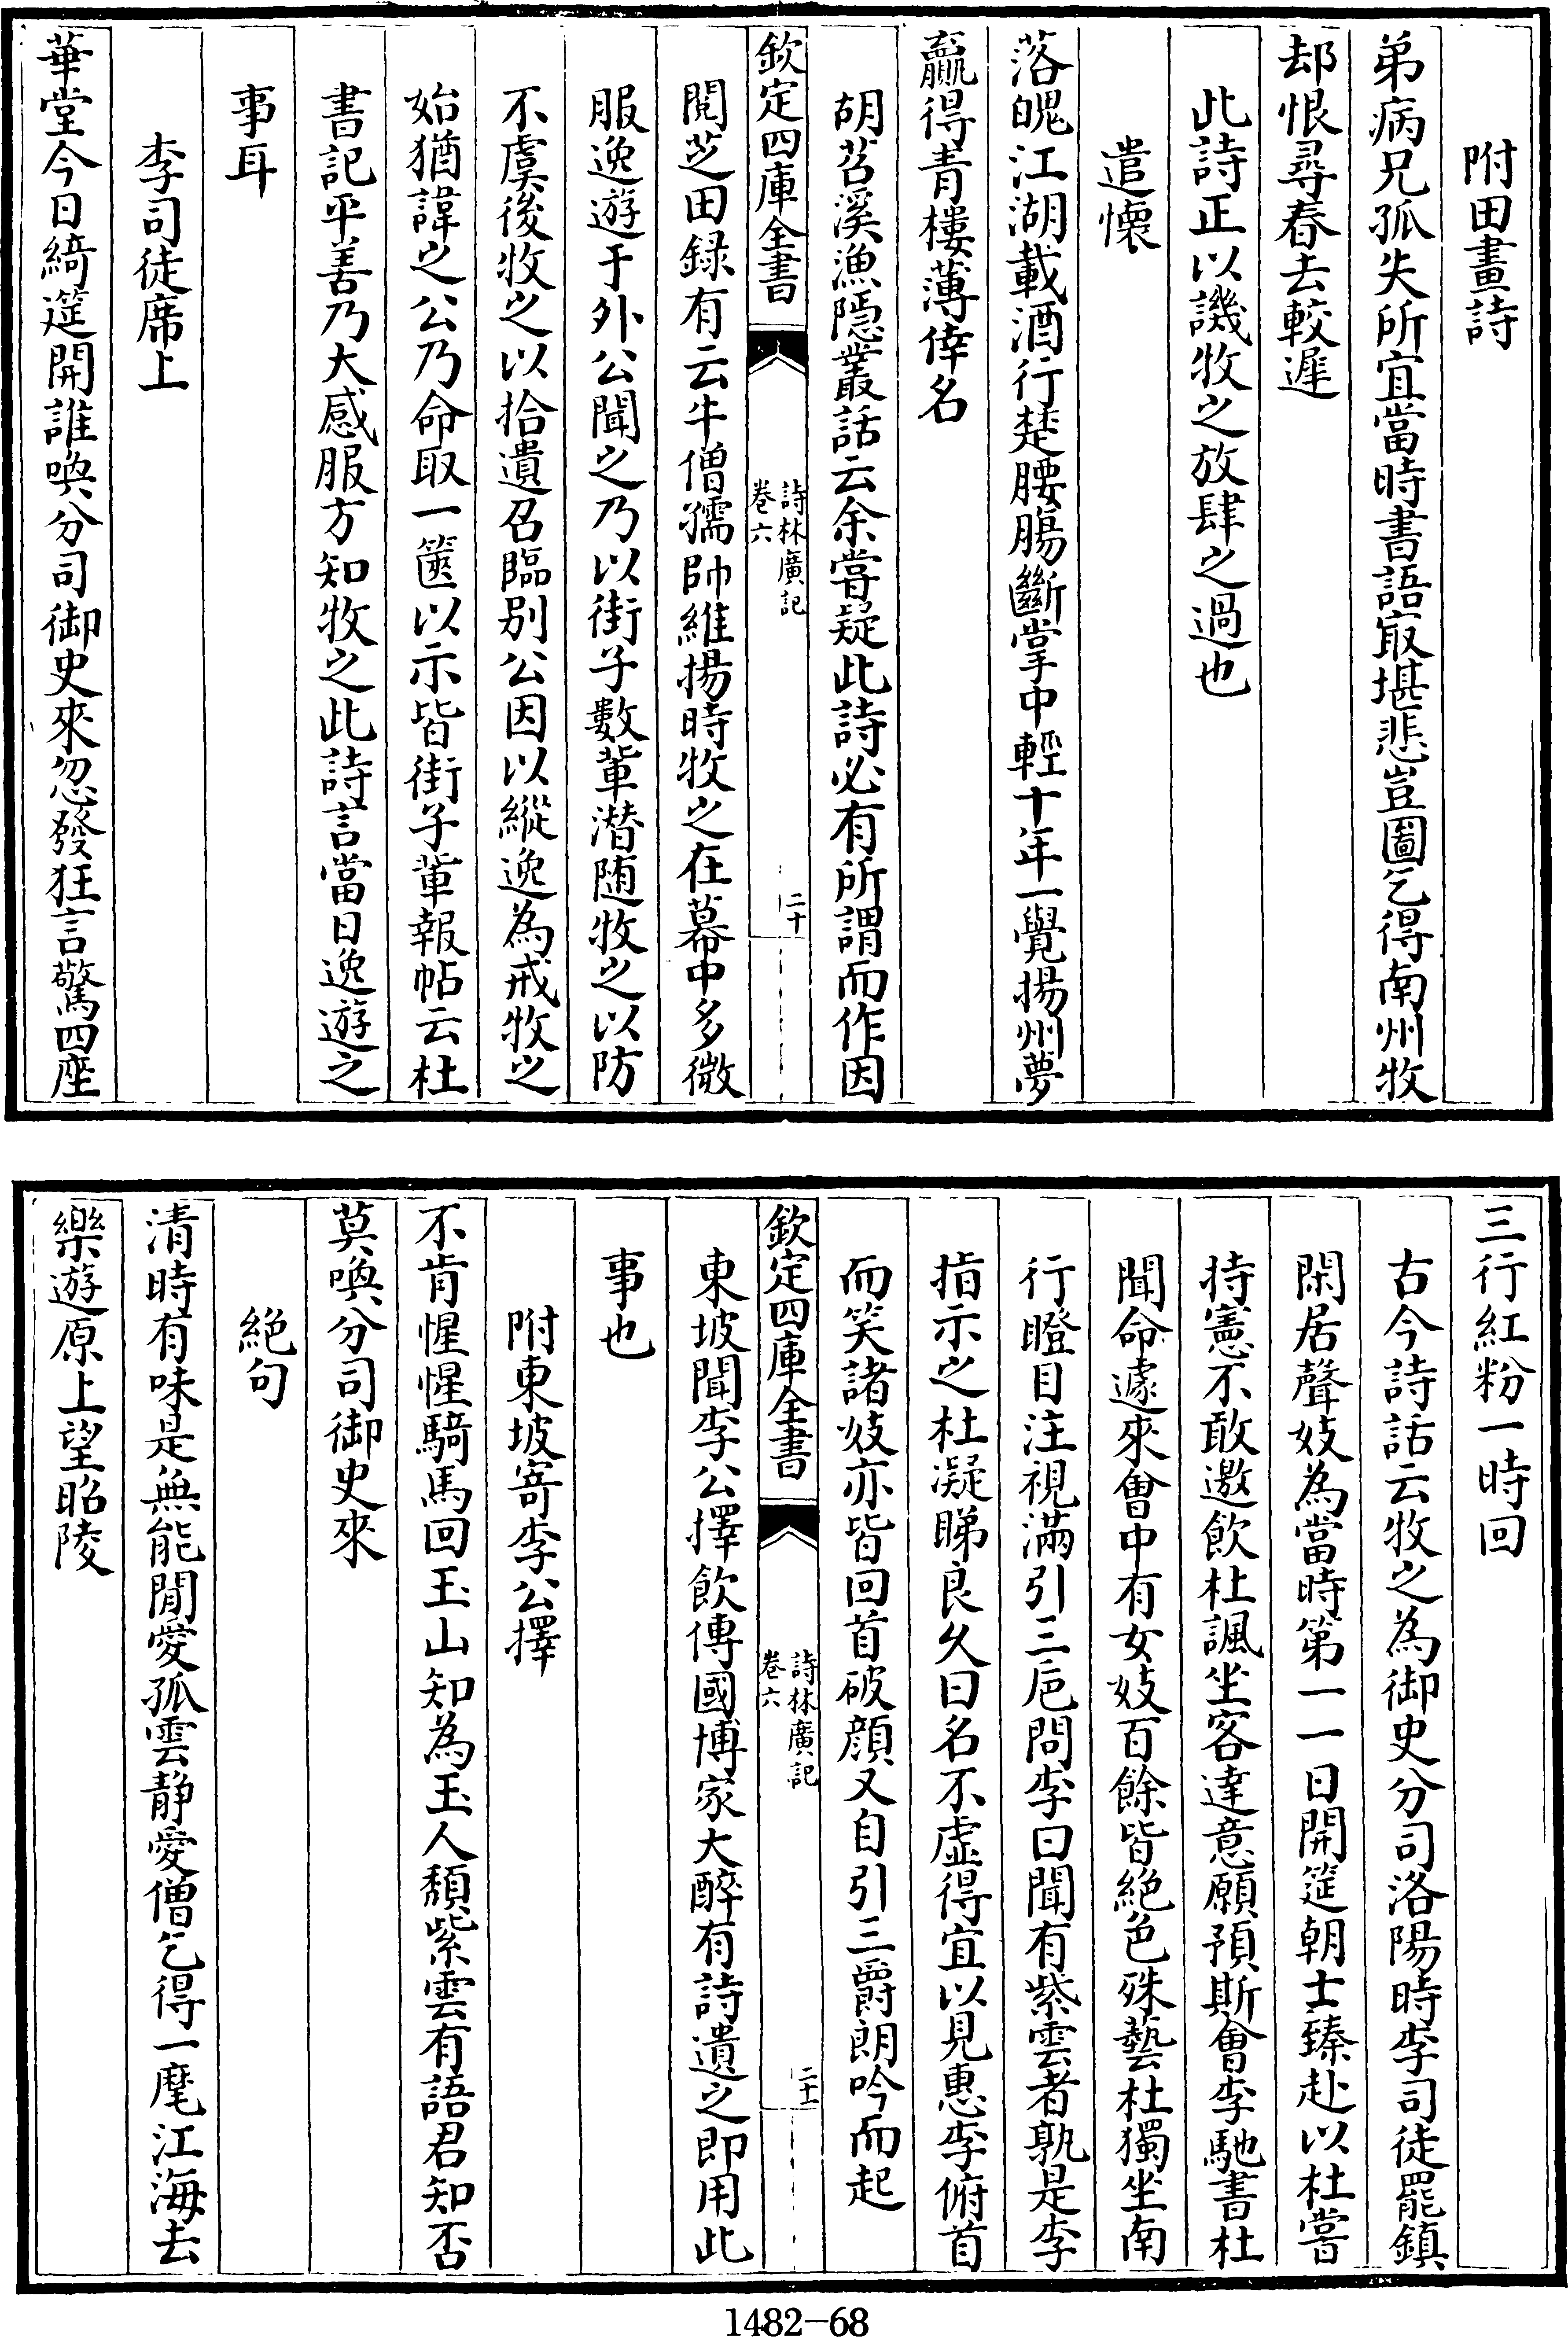 附田畫詩
弟病兄孤失所宜當時書語㝡堪悲豈圖乞得南州牧
却恨尋春去較遲
此詩正以譏牧之放肆之過也
遣懷
落魄江湖載酒行楚腰腸斷掌中輕十年一覺揚州夢
贏得青樓薄倖名
胡苕溪漁隱叢話云余嘗疑此詩必有所謂而作因
欽定四庫全書
詩林廣記
卷六
二十
閱芝田録有云牛僧孺帥維揚時牧之在幕中多微
服逸遊于外公聞之乃以街子數軰潜随牧之以防
不虞後牧之以拾遺召臨别公因以縱逸為戒牧之
始猶諱之公乃命取一篋以示皆街子軰報帖云杜
書記平善乃大感服方知牧之此詩言當日逸遊之
事耳
李司徒席上
華堂今日綺筵開誰喚分司御史來忽發狂言驚四座
三行紅粉一時回
古今詩話云牧之為御史分司洛陽時李司徒罷鎮
閑居聲妓為當時第一一日開筵朝士臻赴以杜嘗
持憲不敢邀飲杜諷坐客達意願預斯會李馳書杜
聞命遽來會中有女妓百餘皆絶色殊藝杜獨坐南
行瞪目注視滿引三巵問李曰聞有紫雲者孰是李
指示之杜凝睇良久曰名不虛得宜以見惠李俯首
而笑諸妓亦皆回首破顔又自引三爵朗吟而起
欽定四庫全書
詩林廣記
卷六
二十一
東坡聞李公擇飲傅國博家大醉有詩遺之即用此
事也
附東坡寄李公擇
不肯惺惺騎馬回玉山知為玉人頽紫雲有語君知否
莫喚分司御史來
絶句
清時有味是無能閒愛孤雲静愛僧乞得一麾江海去
樂遊原上望昭陵
1482-68